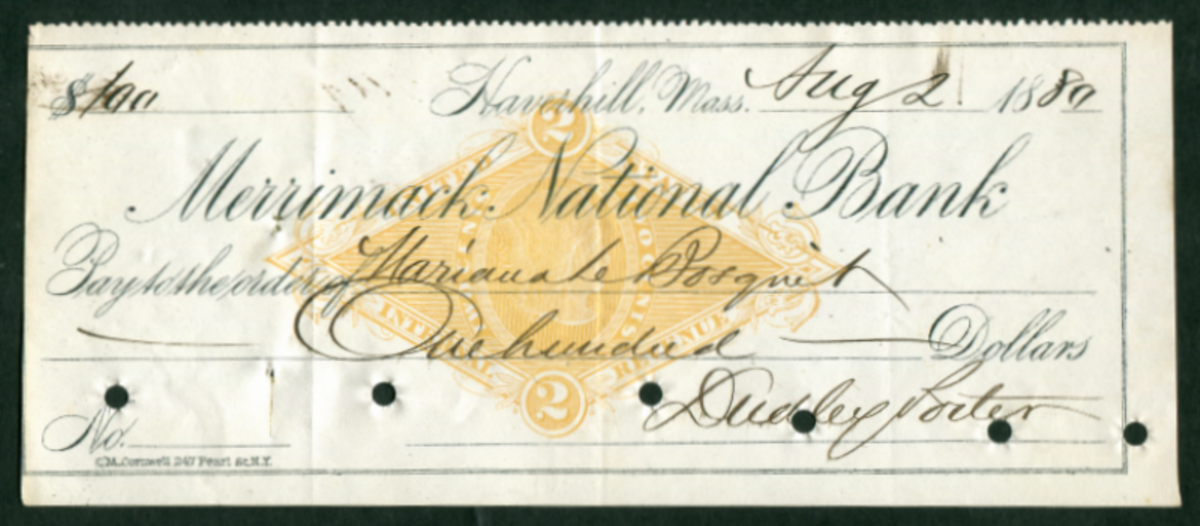 $100 Haverhill, Mass. Aug 2 1880
Merrimack National Bank
Pay to the order of Mariana Le Bosquet
One hundred Dollars
Dudley Porter
No.
C.M. Cornwell 247 Pearl St. N.Y.
2
UNITED STATES
INTERNAL REVENUE
2